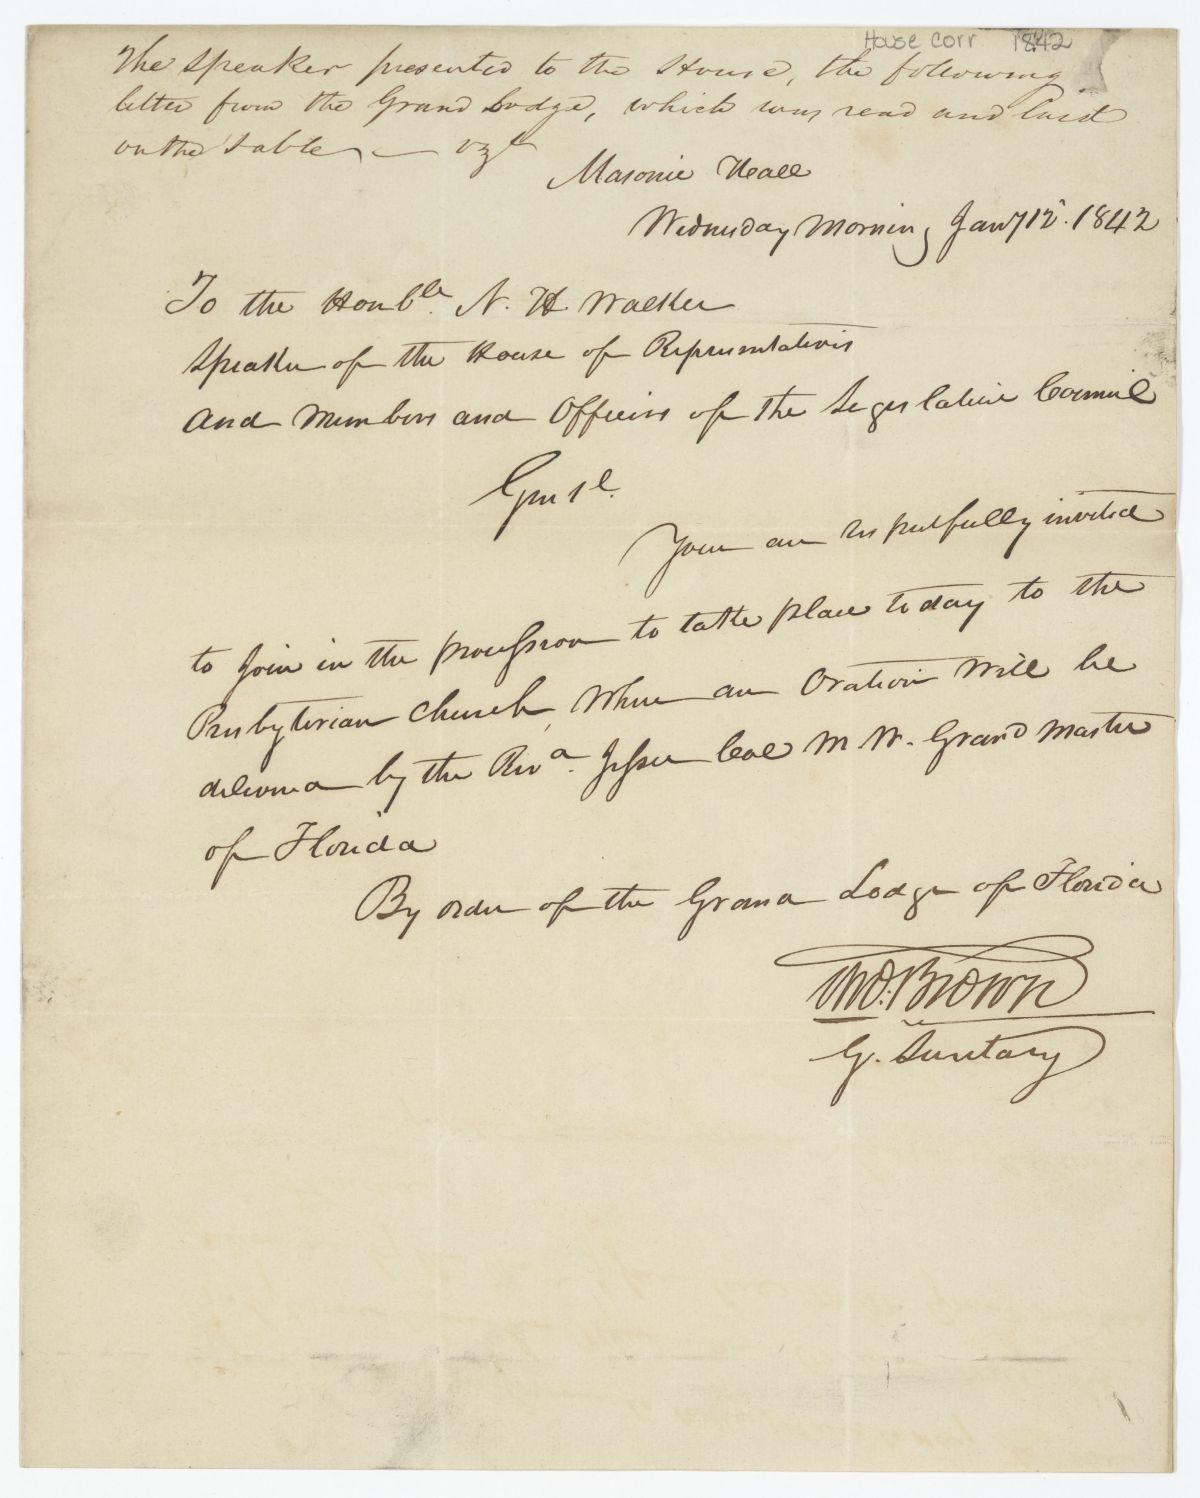 House corr 1842
The Speaker presented to the House, the following
letter from the Grand Lodge, which was read and laid
on the table, — viz
Masonic Hall
Wednesday Morning Jany 12. 1842
To the Honble. N. H. Walker
Speaker of the House of Representatives
and Members and Officers of the Legislative Council
Gentl.
You are respectfully invited
to join in the procession to take place today to the
Presbyterian Church, where an Oration will be
delivered by the Revd. Jesse Coe M. W. Grand Master
of Florida
By order of the Grand Lodge of Florida
Tho. Brown
G. Secretary